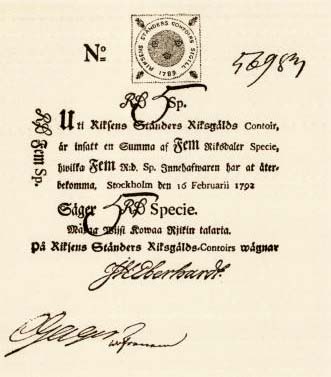 RIKSENS STÄNDERS CONTOIRS SIGILL 1789
No 56983
Rd 5 Sp.
Rd Fem Sp.
Uti Riksens Ständers Riksgälds Contoir,
är insatt en Summa af Fem Riksdaler Specie,
hwilka Fem R:d. Sp. Innehafwaren har at åter-
bekomma, Stockholm den 16 Februarii 1792
Säger 5 Rd Specie.
Wijsi Kowaa Rjikin talaria.
På Riksens Ständers Riksgälds-Contoirs wägnar
Eberhardt